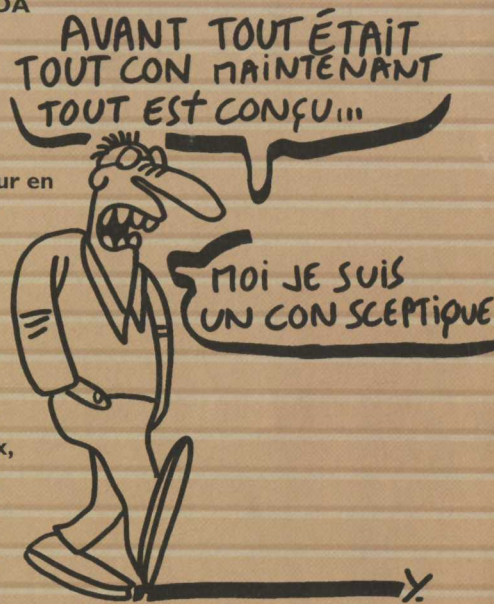 DA
AVANT TOUT ÉTAIT
TOUT CON MAINTENANT
TOUT EST CONÇU...
ur en
MOI JE SUIS
UN CON SCEPTIQUE
x,
Y.